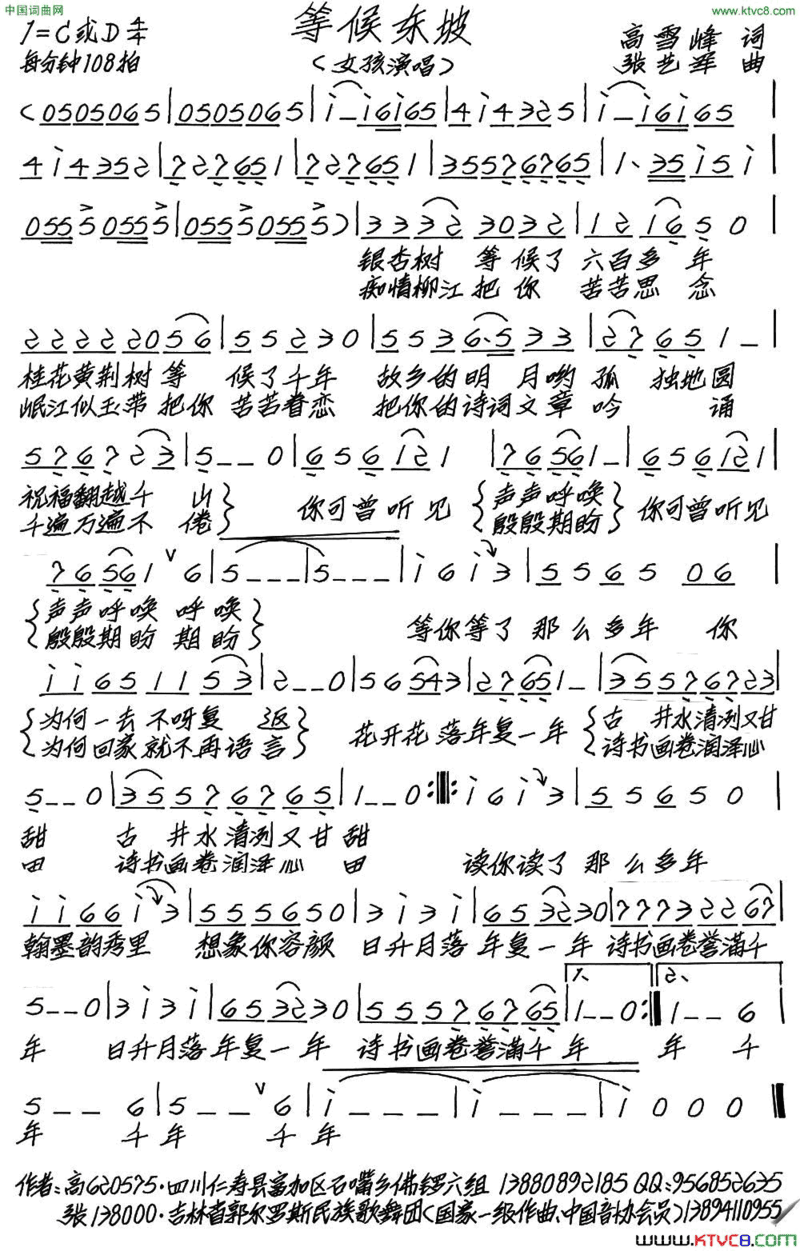 中国词曲网
www.ktvc8.com
等候东坡
1=C或D 4/4
高雪峰 词
每分钟108拍
（女孩演唱）
张艺军 曲
(0505065|0505065|i–i6i65|4i4325|i–i6i65
4i4352|727651|727651|35576765|1、35i5i
055505550555|055505550555)|3332 3032|121650
银杏树 等候了 六百多年
痴情柳江把你 苦苦思念
22222056|55230|5536·533|27651–
桂花黄荆树等 候了千年 故乡的明 月哟孤 独地圆
岷江似玉带把你 苦苦眷恋 把你的诗词文章吟 诵
576723|5––0|656121|76561–|656121
祝福翻越千 山 你可曾听见 声声呼唤 你可曾听见
千遍万遍不 倦 殷殷期盼
76561 6|5–––|5–––|i6i3|5565 06
声声呼唤 呼唤 等你等了 那么多年 你
殷殷期盼 期盼
ii651153|2––0|56543|27651–|35576723
为何一去不呀复 返 花开花落年复一年 古 井水清洌又甘
为何回家就不再语言 诗书画卷润泽心
5––0|35576765|1––0:||:i6i3|55650
甜 古 井水清洌又甘甜
田 诗书画卷润泽心 田 读你读了 那么多年
ii66i3|555650|3i3i|6532230|777322267
翰墨韵秀里 想象你容颜 日升月落 年复一年 诗书画卷誉满千
1、 2、
5––0|3i3i|6532230|55576765|1––0:||1––6
年 日升月落年复一年 诗书画卷誉满千年 年 千
5––6|5––6|i–––|i–––|i000
年 千年 千年
作者:高620575·四川仁寿县富加区石嘴乡佛锣六组 13880892185 QQ:956852635
张138000·吉林省郭尔罗斯民族歌舞团(国家一级作曲、中国音协会员)13894110955
www.KTVC8.com